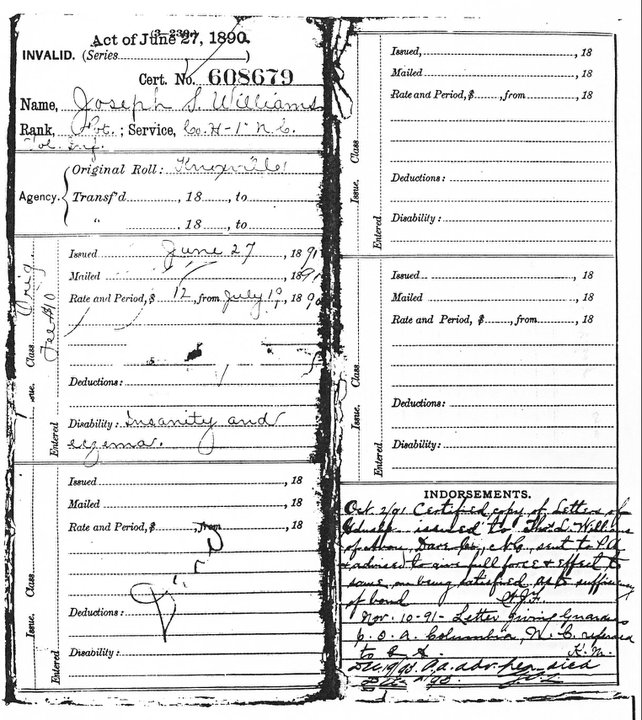 3-230.
Act of June 27, 1890.
INVALID. (Series )
Cert. No. 608679
Name, Joseph S. Williams
Rank, Pvt. ; Service, Co. H-1" N.C.
Col. Inf.
Agency.
Original Roll: Knoxville
Transf'd , 18 , to
" , 18 , to
Orig.
Fee $10
Issue. Class
Entered
Issued June 27 , 1891
Mailed , 1891
Rate and Period, $ 12 , from July 19, 1890
Deductions:
Disability: Insanity and
eczema.
Issue. Class
Entered
Issued , 18
Mailed , 18
Rate and Period, $ , from , 18
Died
Deductions:
Disability:
Issue. Class
Entered
Issued, , 18
Mailed , 18
Rate and Period, $ , from , 18
Deductions:
Disability:
Issue. Class
Entered
Issued , 18
Mailed , 18
Rate and Period, $ , from , 18
Deductions:
Disability:
INDORSEMENTS.
Oct. 2/91 Certified copy of Letters of
issued to Thos. L. Williams
of Avon, Dare Co., N.C., sent to P.A.
& advised to give full force & effect to
same, on being satisfied as to sufficiency
of bond
Nov. 10-91- Letter giving Guardians
P.O.A. Columbia, N.C. referred
to K.M.
P.A. adv. pen. died